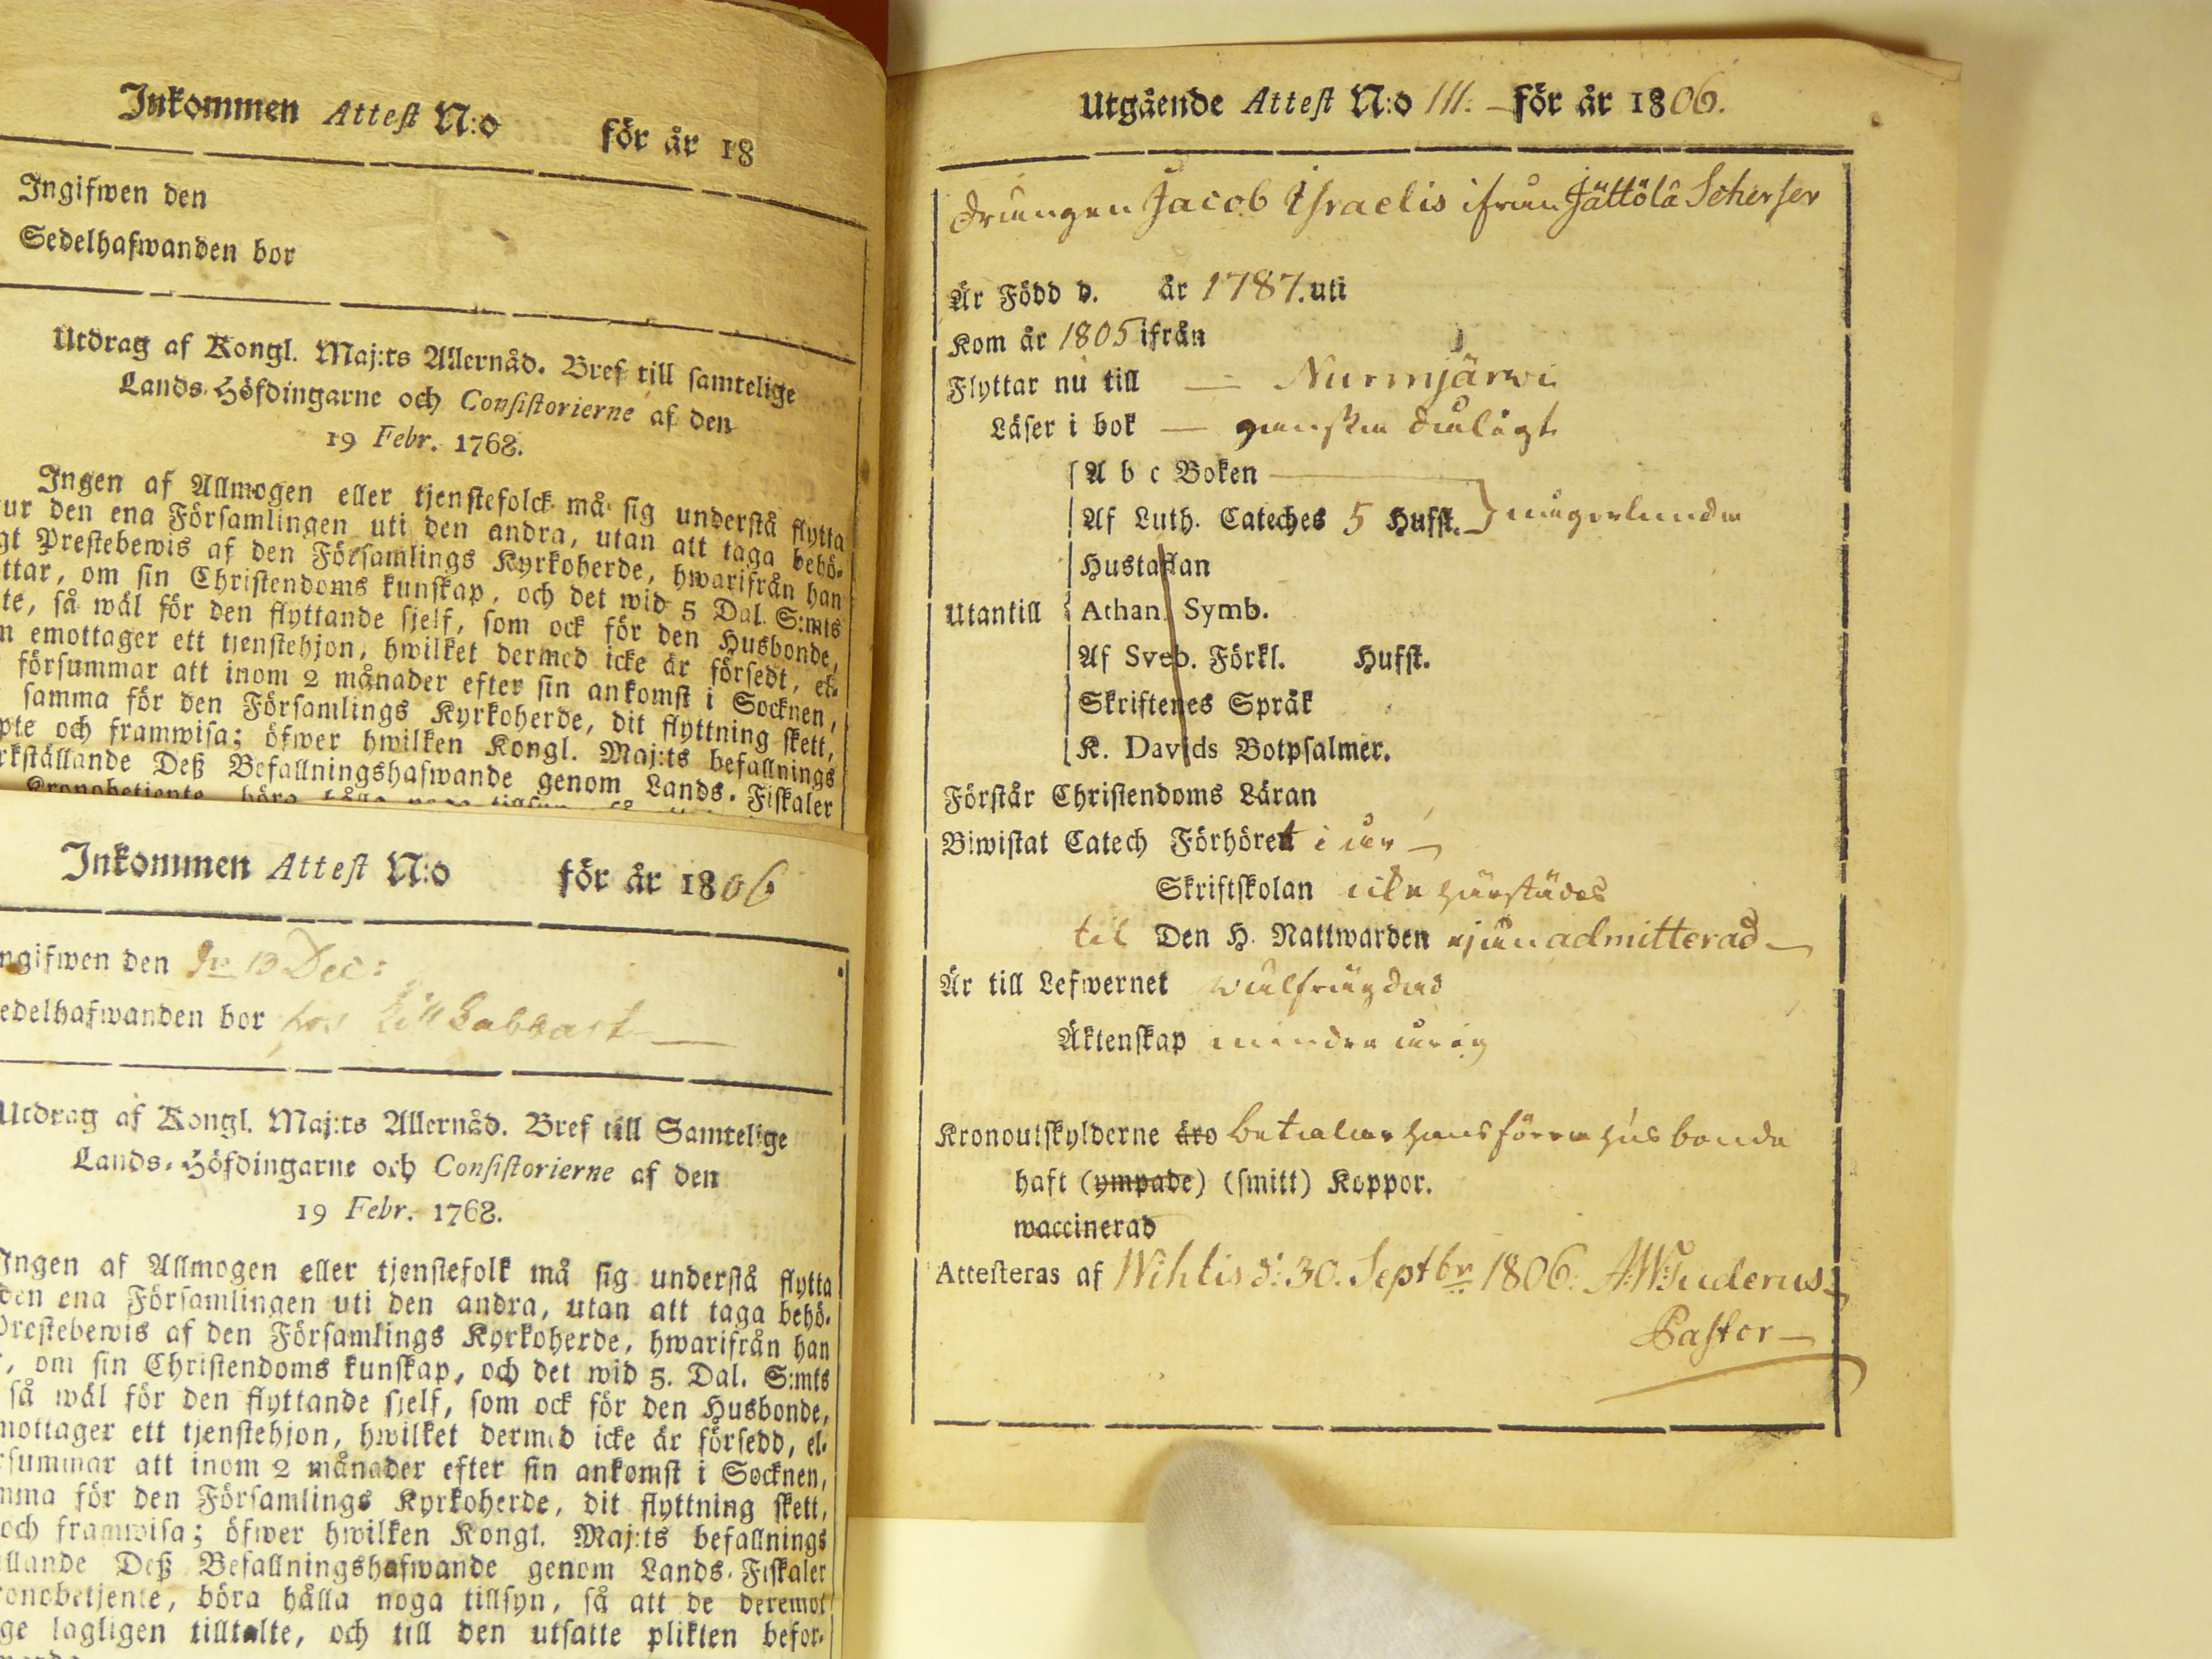 Inkommen Attest N:o för år 18
Ingifwen den
Sedelhafwanden bor
Utdrag af Kongl. Maj:ts Allernåd. Bref till samtelige
Lands-Höfdingarne och Consistorierne af den
19 Febr. 1768.
Ingen af Allmogen eller tjenstefolck må sig understå flytta
ur den ena Församlingen uti den andra, utan att taga behö-
gt Prestebewis af den Församlings Kyrkoherde, hwarifrån han
ttar, om sin Christendoms kunskap, och det wid 5 Dal. S:mts
te, så wäl för den flyttande sjelf, som ock för den Husbonde,
n emottager ett tjenstehjon, hwilket dermed icke är försedt, el-
försummar att inom 2 månader efter sin ankomst i Socknen,
samma för den Församlings Kyrkoherde, dit flyttning skett,
pte och framwisa; öfwer hwilken Kongl. Maj:ts befallnings
rkställande Deß Befallningshafwande genom Lands-Fiskaler
Kronobetjente, böra hålla noga tillsyn, så
Inkommen Attest N:o för år 1806
ngifwen den dn 13 Dec:
edelhafwanden bor hos
Utdrag af Kongl. Maj:ts Allernåd. Bref till Samtelige
Lands-Höfdingarne och Consistorierne af den
19 Febr. 1768.
Ingen af Allmogen eller tjenstefolk må sig understå flytta
den ena Församlingen uti den andra, utan att taga behö-
Prestebewis af den Församlings Kyrkoherde, hwarifrån han
, om sin Christendoms kunskap, och det wid 5. Dal. S:mts
så wäl för den flyttande sjelf, som ock för den Husbonde,
mottager ett tjenstehjon, hwilket dermed icke är försedd, el-
rsummar att inom 2 månader efter sin ankomst i Socknen,
mma för den Församlings Kyrkoherde, dit flyttning skett,
och framwisa; öfwer hwilken Kongl. Maj:ts befallnings
llande Deß Befallningshafwande genom Lands-Fiskaler
onobetjente, böra hålla noga tillsyn, så att de deremot
ge lagligen tilltalte, och till den utsatte plikten befor-
Utgående Attest N:o 111. för år 1806.
Drängen Jacob Israelis ifrån Jättölä Scherfer
Är Född d. år 1787. uti
Kom år 1805 ifrån
Flyttar nu till — Nurmjärwi
Läser i bok — ganska dåligt
A b c Boken
Af Luth. Cateches 5 Hufst. någorlunda
Hustaflan
Utantill Athan. Symb.
Af Sveb. Förkl. Hufst.
Skriftenes Språk
K. Davids Botpsalmer.
Förstår Christendoms Läran
Biwistat Catech Förhöret i år —
Skriftskolan icke härstädes
til Den H. Nattwarden ej än admitterad —
Är till Lefwernet wälfrägdad
Äktenskap minderårig
Kronoutskylderne äro betalar hans förra husbonde
haft (ympade) (smitt) Koppor.
waccinerad
Attesteras af Wihtis d: 30. Septbr 1806. A:W:Tuderus
Pastor —